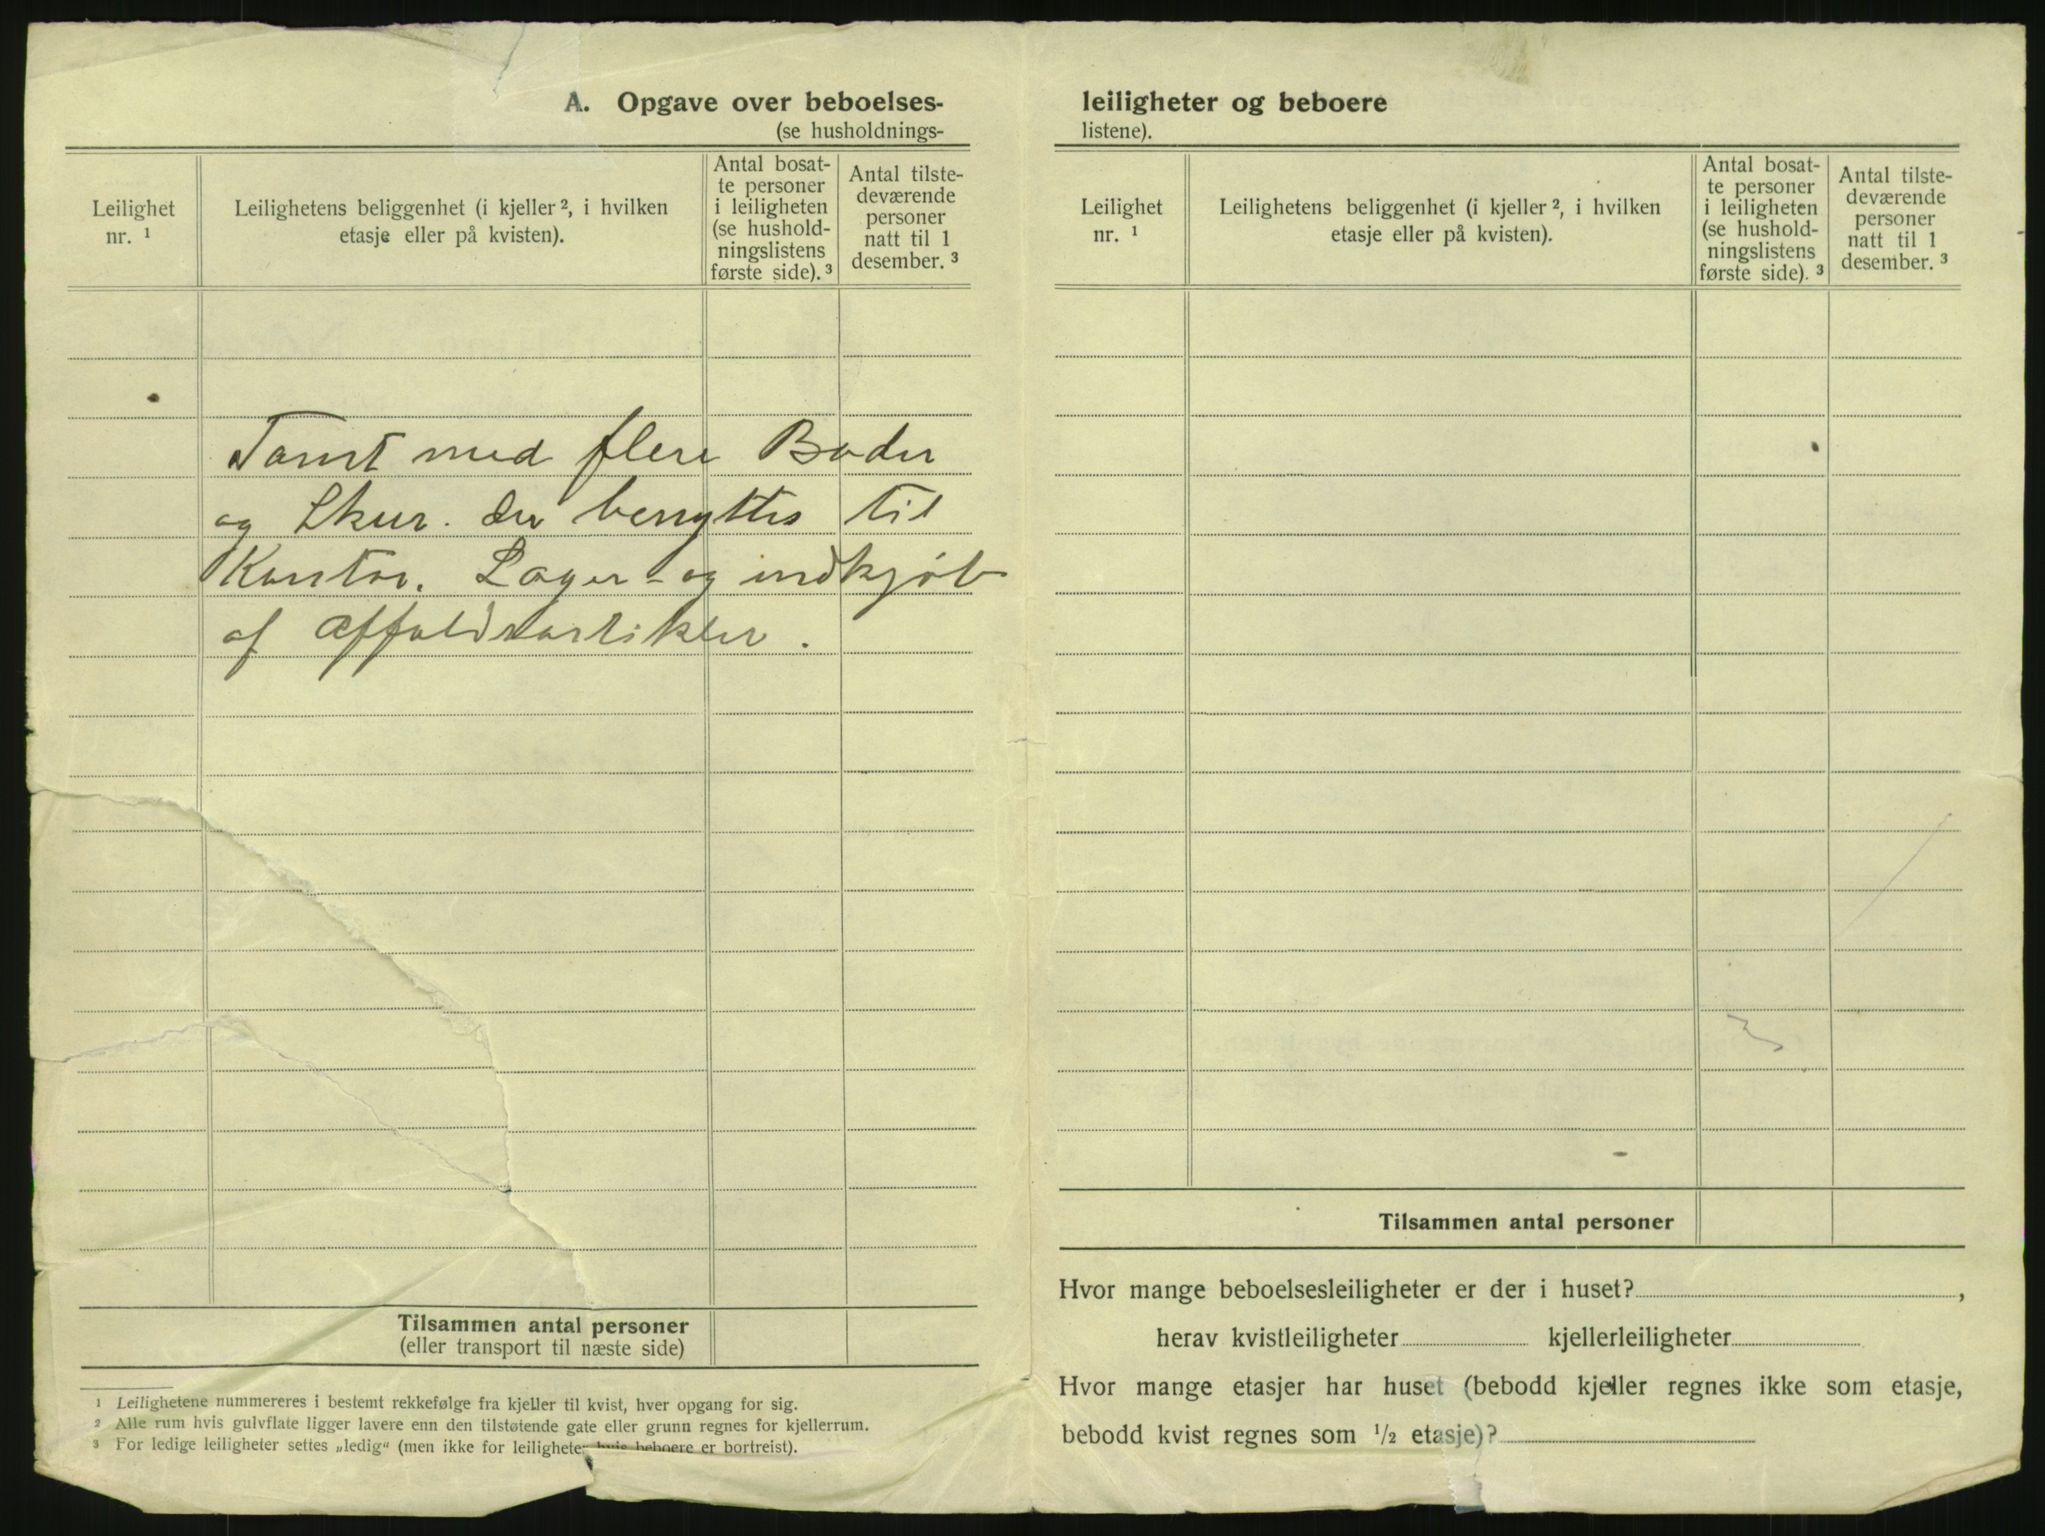 A. Opgave over beboelses-
(se husholdnings-
Leilighet
nr. ¹
Leilighetens beliggenhet (i kjeller ², i hvilken
etasje eller på kvisten).
Antal bosat-
te personer
i leiligheten
(se hushold-
ningslistens
første side). ³
Antal tilste-
deværende
personer
natt til 1
desember. ³
Tomt med flere Boder
og Skur. der benyttes til
Kontor. Lager- og indkjøb
af Affaldsartikler.
Tilsammen antal personer
(eller transport til næste side)
¹ Leilighetene nummereres i bestemt rekkefølge fra kjeller til kvist, hver opgang for sig.
² Alle rum hvis gulvflate ligger lavere enn den tilstøtende gate eller grunn regnes for kjellerrum.
³ For ledige leiligheter settes „ledig“ (men ikke for leiligheter hvis beboere er bortreist).
leiligheter og beboere
listene).
Leilighet
nr. ¹
Leilighetens beliggenhet (i kjeller ², i hvilken
etasje eller på kvisten).
Antal bosat-
te personer
i leiligheten
(se hushold-
ningslistens
første side). ³
Antal tilste-
deværende
personer
natt til 1
desember. ³
Tilsammen antal personer
Hvor mange beboelsesleiligheter er der i huset?,
herav kvistleiligheter kjellerleiligheter
Hvor mange etasjer har huset (bebodd kjeller regnes ikke som etasje,
bebodd kvist regnes som ½ etasje)?